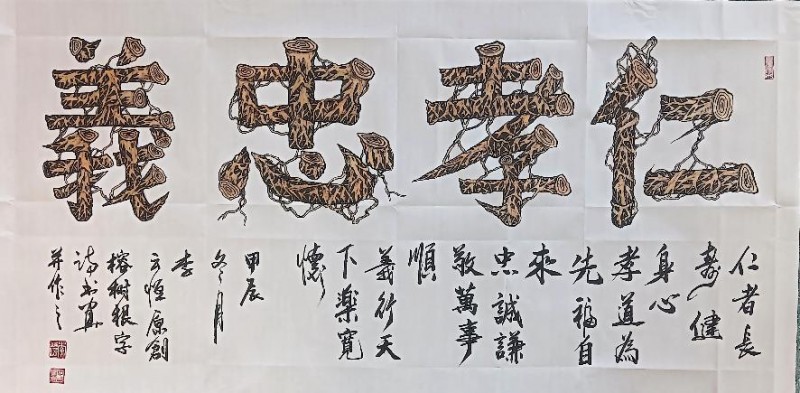 仁孝忠義
仁者長
壽健
身心
孝道為
先福自
來
忠誠謙
敬萬事
順
義行天
下樂寬
懷
甲辰
冬月
李
云恒原創
榕樹根字
詩书画
并作之